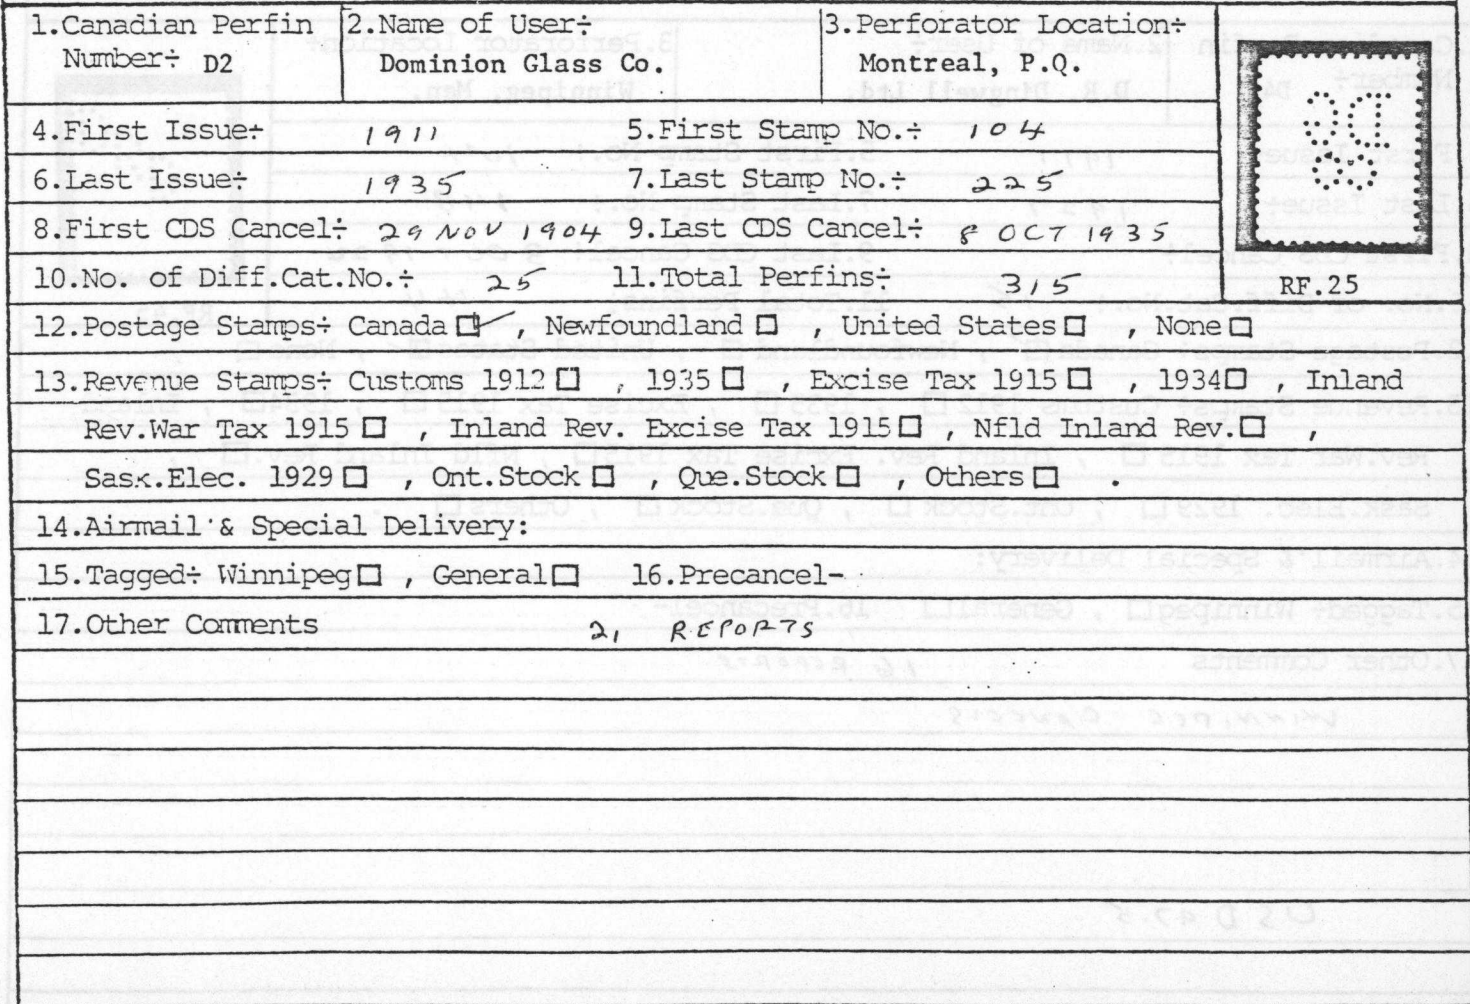 1.Canadian Perfin Number÷ D2
2.Name of User÷ Dominion Glass Co.
3.Perforator Location÷ Montreal, P.Q.
4.First Issue÷ 1911 5.First Stamp No.÷ 104
6.Last Issue÷ 1935 7.Last Stamp No.÷ 225
8.First CDS Cancel÷ 29 NOV 1904 9.Last CDS Cancel÷ 8 OCT 1935
10.No. of Diff.Cat.No.÷ 25 11.Total Perfins÷ 315
RF.25
12.Postage Stamps÷ Canada ☑ , Newfoundland □ , United States □ , None □
13.Revenue Stamps÷ Customs 1912 □ , 1935 □ , Excise Tax 1915 □ , 1934 □ , Inland
Rev.War Tax 1915 □ , Inland Rev. Excise Tax 1915 □ , Nfld Inland Rev. □ ,
Sask.Elec. 1929 □ , Ont.Stock □ , Que.Stock □ , Others □ .
14.Airmail & Special Delivery:
15.Tagged÷ Winnipeg □ , General □ 16.Precancel-
17.Other Comments 21 REPORTS